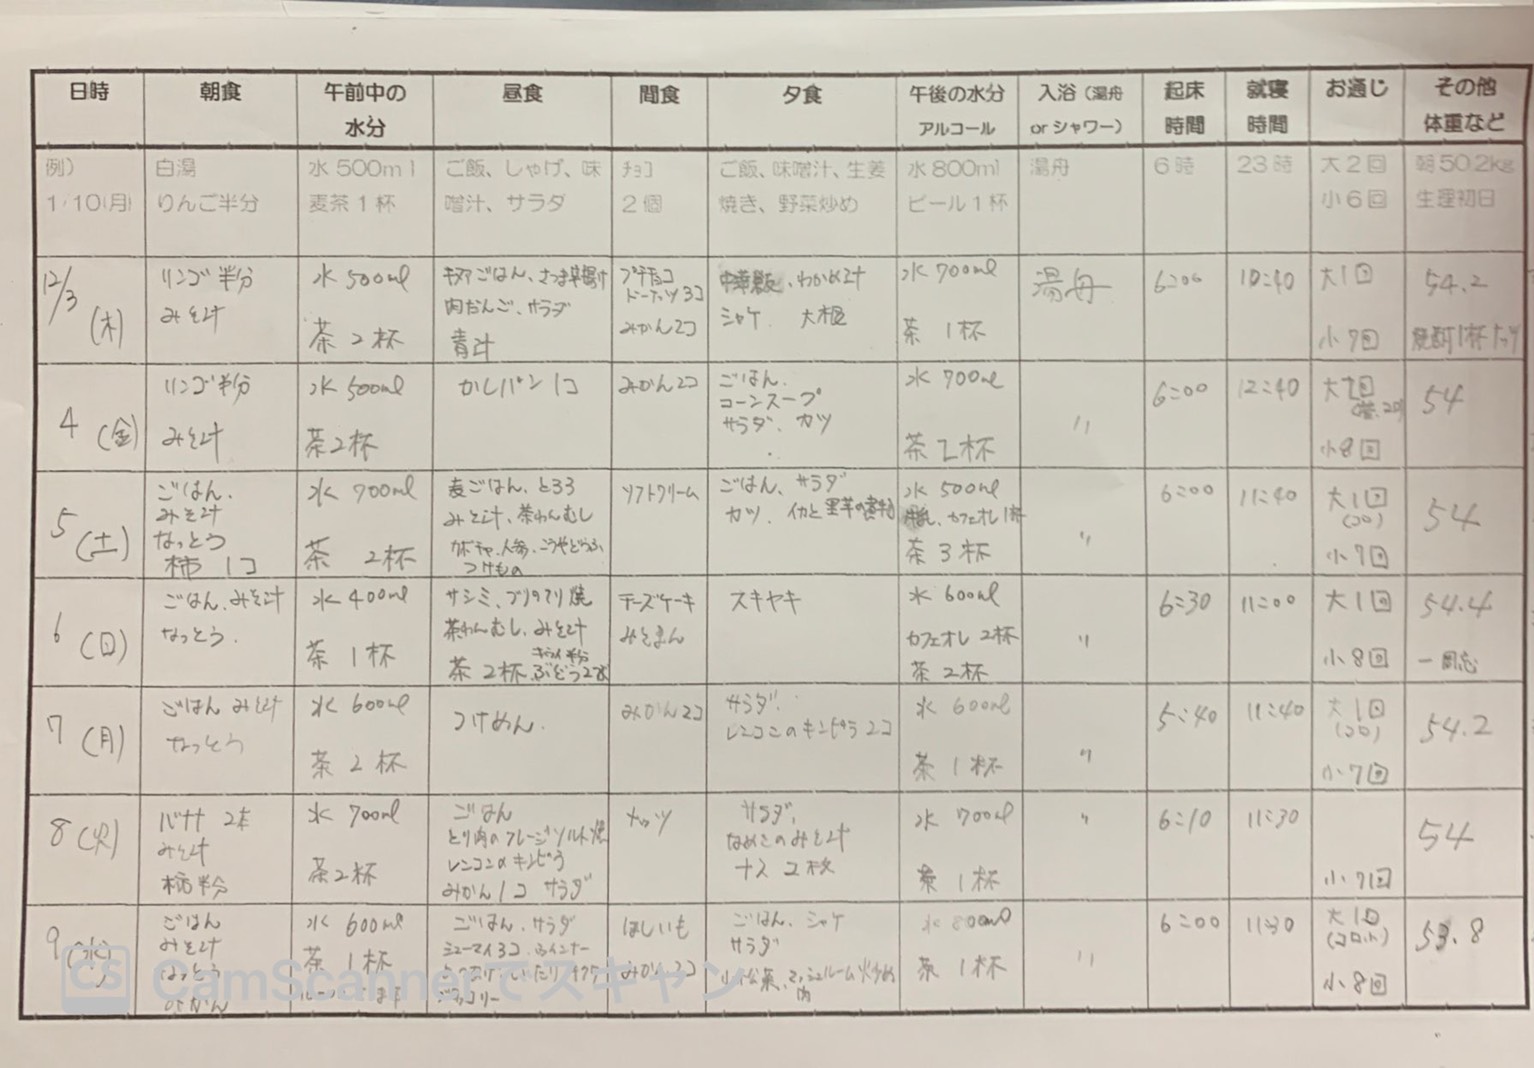 日時 朝食 午前中の水分 昼食 間食 夕食 午後の水分 アルコール 入浴（湯舟 or シャワー） 起床時間 就寝時間 お通じ その他 体重など
例） 白湯 水 500ml ご飯、しゃけ、味 チョコ ご飯、味噌汁、生姜 水 800ml 湯舟 6 時 23 時 大 2 回 朝 50.2kg
1/10(月) りんご半分 麦茶 1 杯 噌汁、サラダ 2 個 焼き、野菜炒め ビール 1 杯 小 6 回 生理初日
12/3 (木)
リンゴ半分
みそ汁
水 500ml
茶 2 杯
ごはん、さつま揚げ
肉だんご、サラダ
青汁
プチチョコ
ドーナッツ 3コ
みかん2コ
わかめ汁
シャケ 大根
水 700ml
茶 1杯
湯舟
6:00
10:40
大1回
小 7回
54.2
焼酎1杯
4 (金)
リンゴ半分
みそ汁
水 500ml
茶2杯
かしパン 1コ
みかん2コ
ごはん、
コーンスープ
サラダ、カツ
水 700ml
茶 2杯
〃
6:00
12:40
小8回
54
5 (土)
ごはん、
みそ汁
なっとう
柿 1コ
水 700ml
茶 2杯
麦ごはん、とろろ
みそ汁、茶わんむし
カボチャ、人参、こうやどうふ
つけもの
ソフトクリーム
ごはん、サラダ
カツ、イカと里芋の煮物
水 500ml
カフェオレ 1杯
茶 3杯
〃
6:00
11:40
大1回
(コロ)
小 7回
54
6 (日)
ごはん、みそ汁
なっとう、
水 400ml
茶 1杯
サシミ、ブリのてり焼
茶わんむし、みそ汁
キウイ半分
茶 2杯、ぶどう2コ
チーズケーキ
みそまん
スキヤキ
水 600ml
カフェオレ 2杯
茶 2杯
〃
6:30
11:00
大1回
小8回
54.4
7 (月)
ごはん みそ汁
なっとう
水 600ml
茶 2 杯
つけめん、
みかん2コ
サラダ、
レンコンのキンピラ 2コ
水 600ml
茶 1杯
〃
5:40
11:40
大1回
(コロ)
小7回
54.2
8 (火)
バナナ 2本
みそ汁
柿半分
水 700ml
茶2杯
ごはん
とり肉のクレージーソルト焼
レンコンのキンピラ
みかん1コ サラダ
ナッツ
サラダ、
なめこのみそ汁
ナス 2枚
水 700ml
茶 1杯
〃
6:10
11:30
小 7回
54
9 (水)
ごはん
みそ汁
なっとう
みかん
水 600ml
茶 1杯
ごはん、サラダ
シューマイ3コ、ウインナー
ブロッコリー
ほしいも
みかん2コ
ごはん、シャケ
サラダ
小松菜、マッシュルーム火炒め
肉
水 800ml
茶 1杯
〃
6:00
11:30
大1回
(コロ小)
小8回
53.8
CS CamScannerでスキャン